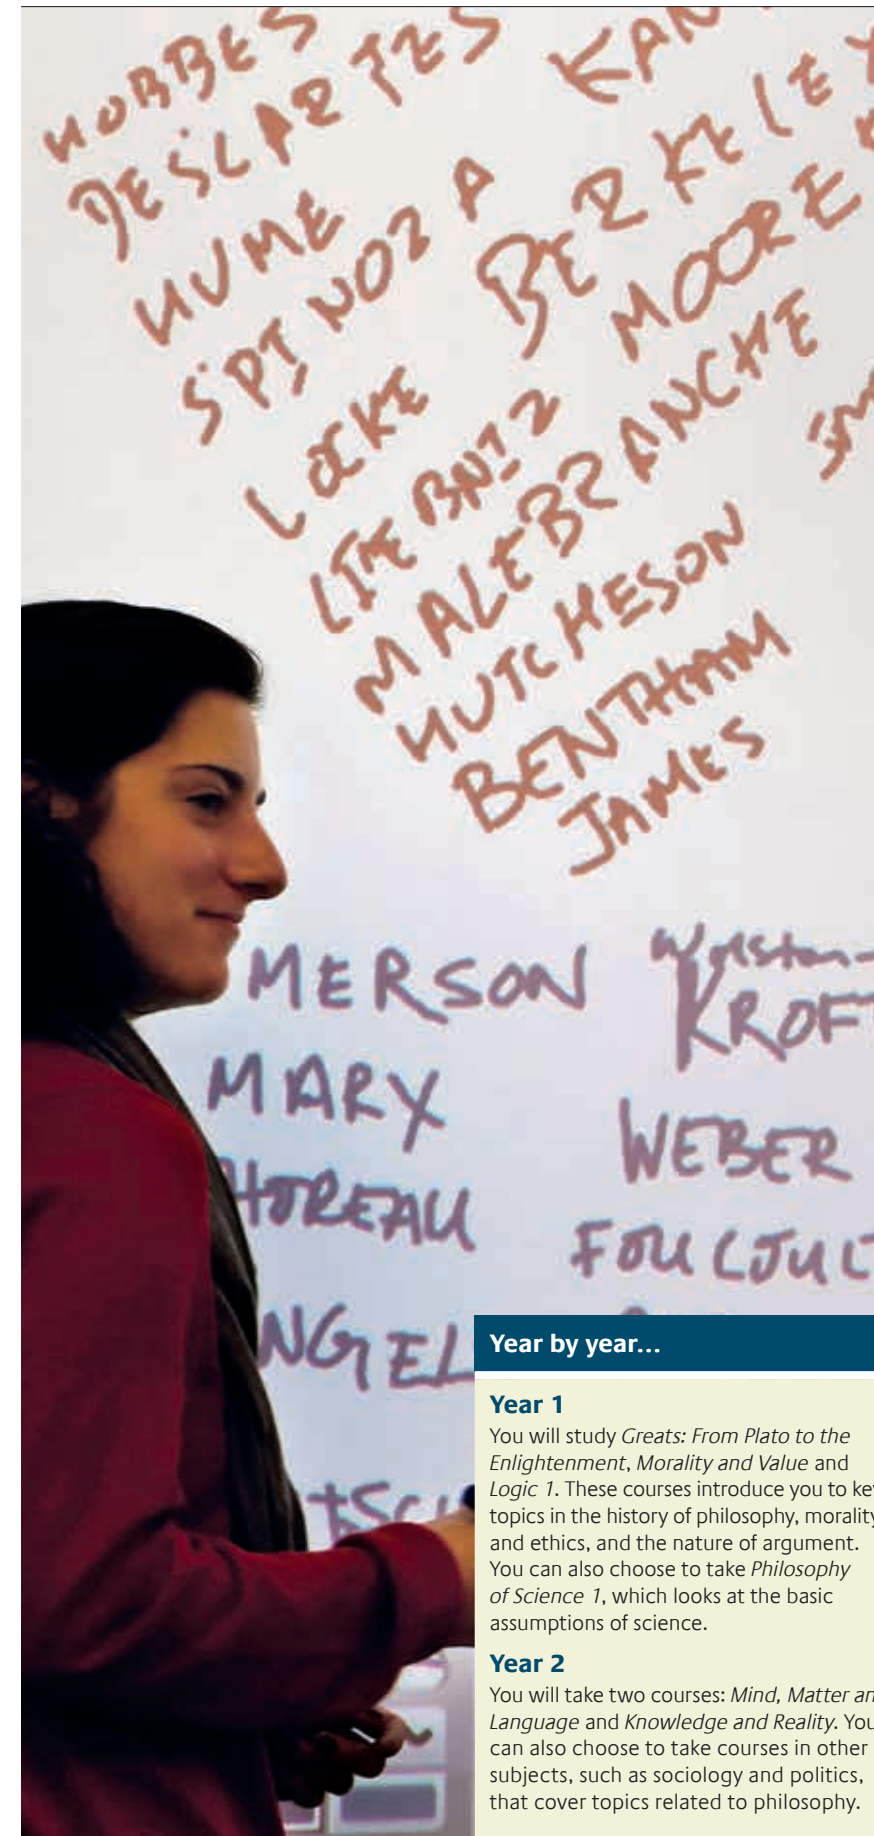 HOBBES
DESCARTES
KAN
HUME
SPINOZA
BERKELEY
LOCKE
MOORE
LIEBNIZ
MALEBRANCHE
HUTCHESON
BENTHAM
JAMES
MERSON
Wolston-
KROFT
MARX
WEBER
HOREAU
FOUCAUL
NGEL
Year by year…
Year 1
You will study Greats: From Plato to the
Enlightenment, Morality and Value and
Logic 1. These courses introduce you to key
topics in the history of philosophy, morality
and ethics, and the nature of argument.
You can also choose to take Philosophy
of Science 1, which looks at the basic
assumptions of science.
Year 2
You will take two courses: Mind, Matter an
Language and Knowledge and Reality. You
can also choose to take courses in other
subjects, such as sociology and politics,
that cover topics related to philosophy.